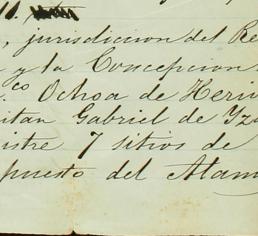 , jurisdiccion del Re
y la Concepcion
co Ochoa de Heri
itan Gabriel de Yza
istre 7 sitios de
puesto del Alam